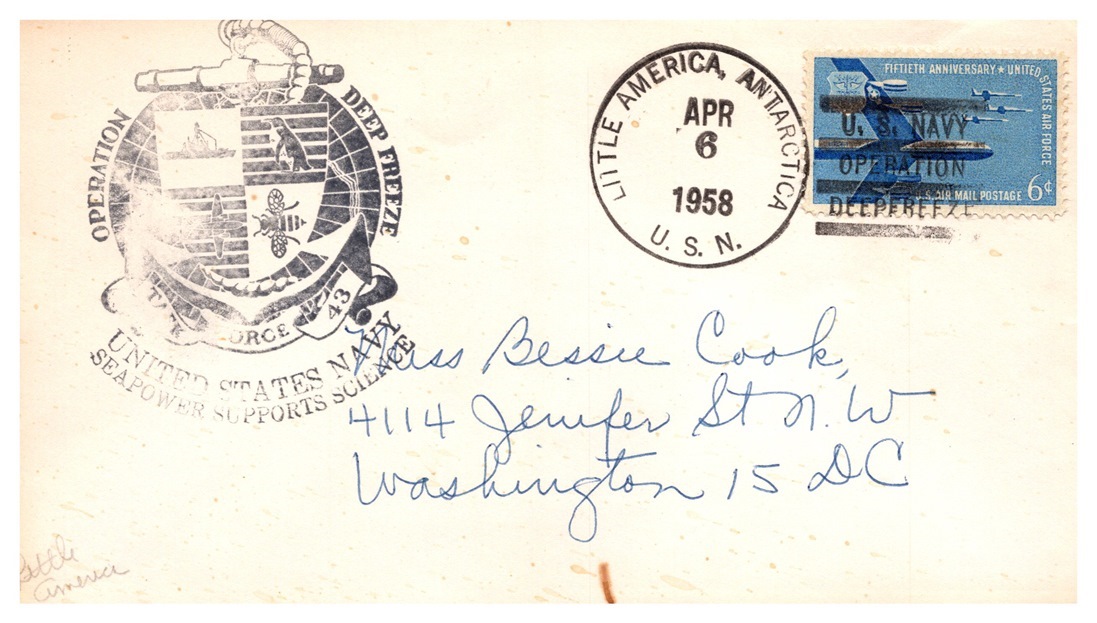 OPERATION DEEP FREEZE
TASK FORCE 43
UNITED STATES NAVY
SEAPOWER SUPPORTS SCIENCE
LITTLE AMERICA, ANTARCTICA
APR
6
1958
U. S. N.
FIFTIETH ANNIVERSARY ★ UNITED STATES AIR FORCE
U.S. AIR MAIL POSTAGE 6¢
U. S. NAVY
OPERATION
DEEPFREEZE
Miss Bessie Cook,
4114 Jenifer St N.W
Washington 15 DC
Little
America